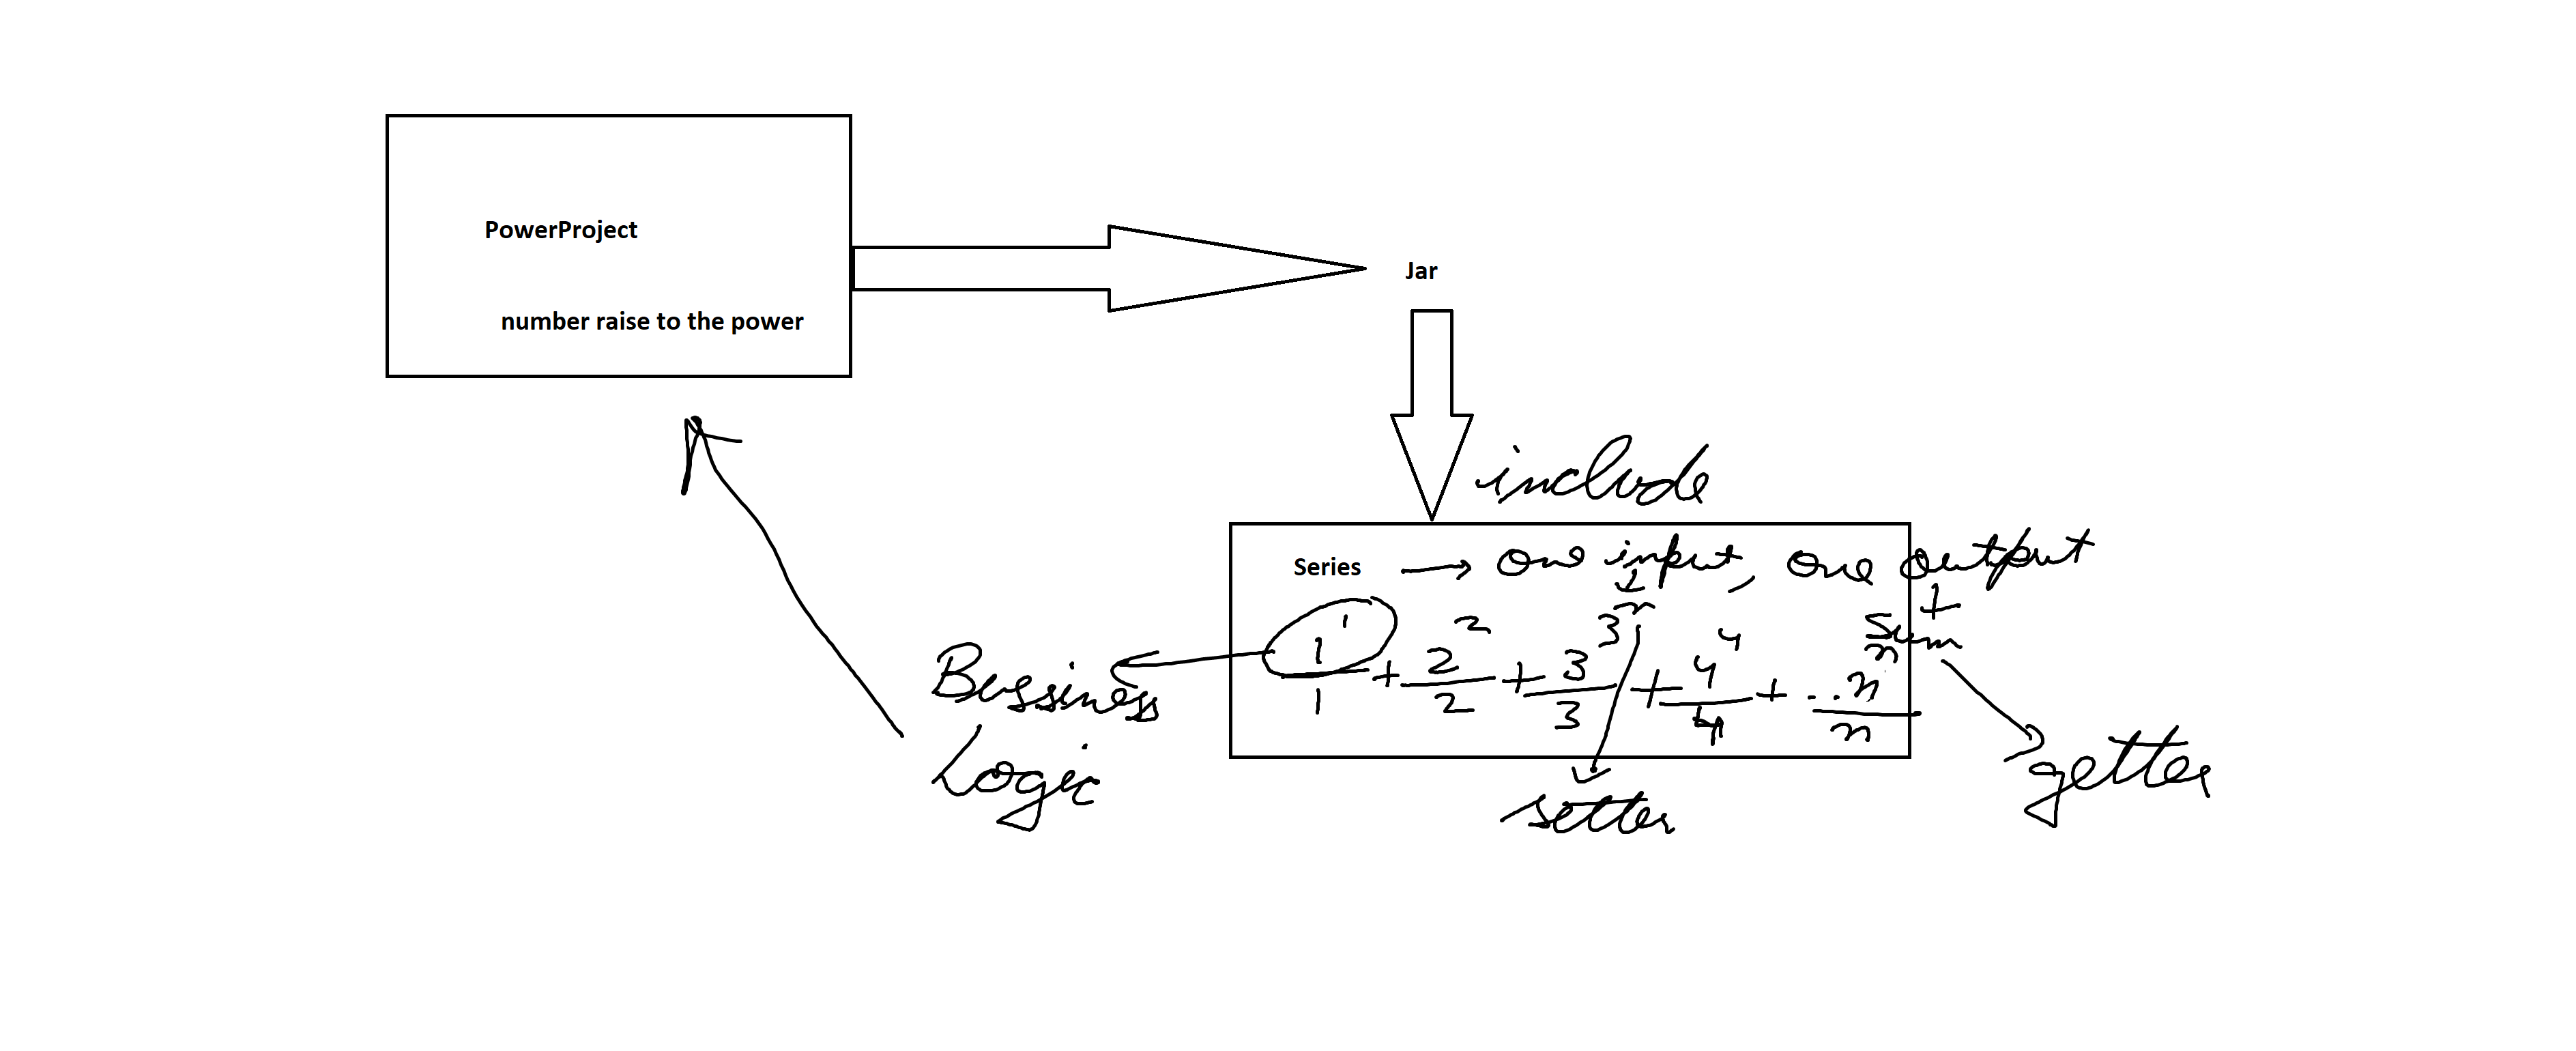 PowerProject
number raise to the power
Jar
include
Series → one input, one output
n
sum
1^1/1 + 2^2/2 + 3^3/3 + 4^4/4 + .. n^n/n
Bussiness
Logic
setter
getter